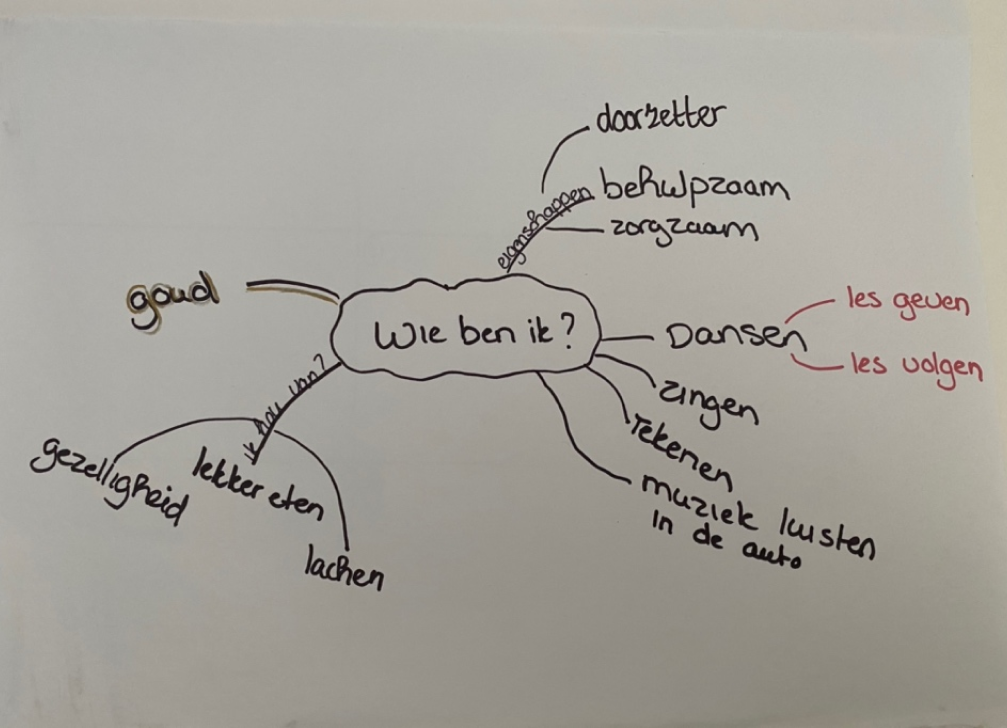 Wie ben ik?
eigenschappen
doorzetter
behulpzaam
zorgzaam
Dansen
les geven
les volgen
zingen
Tekenen
muziek luisten
in de auto
ik hou van?
lachen
lekker eten
gezelligheid
goud